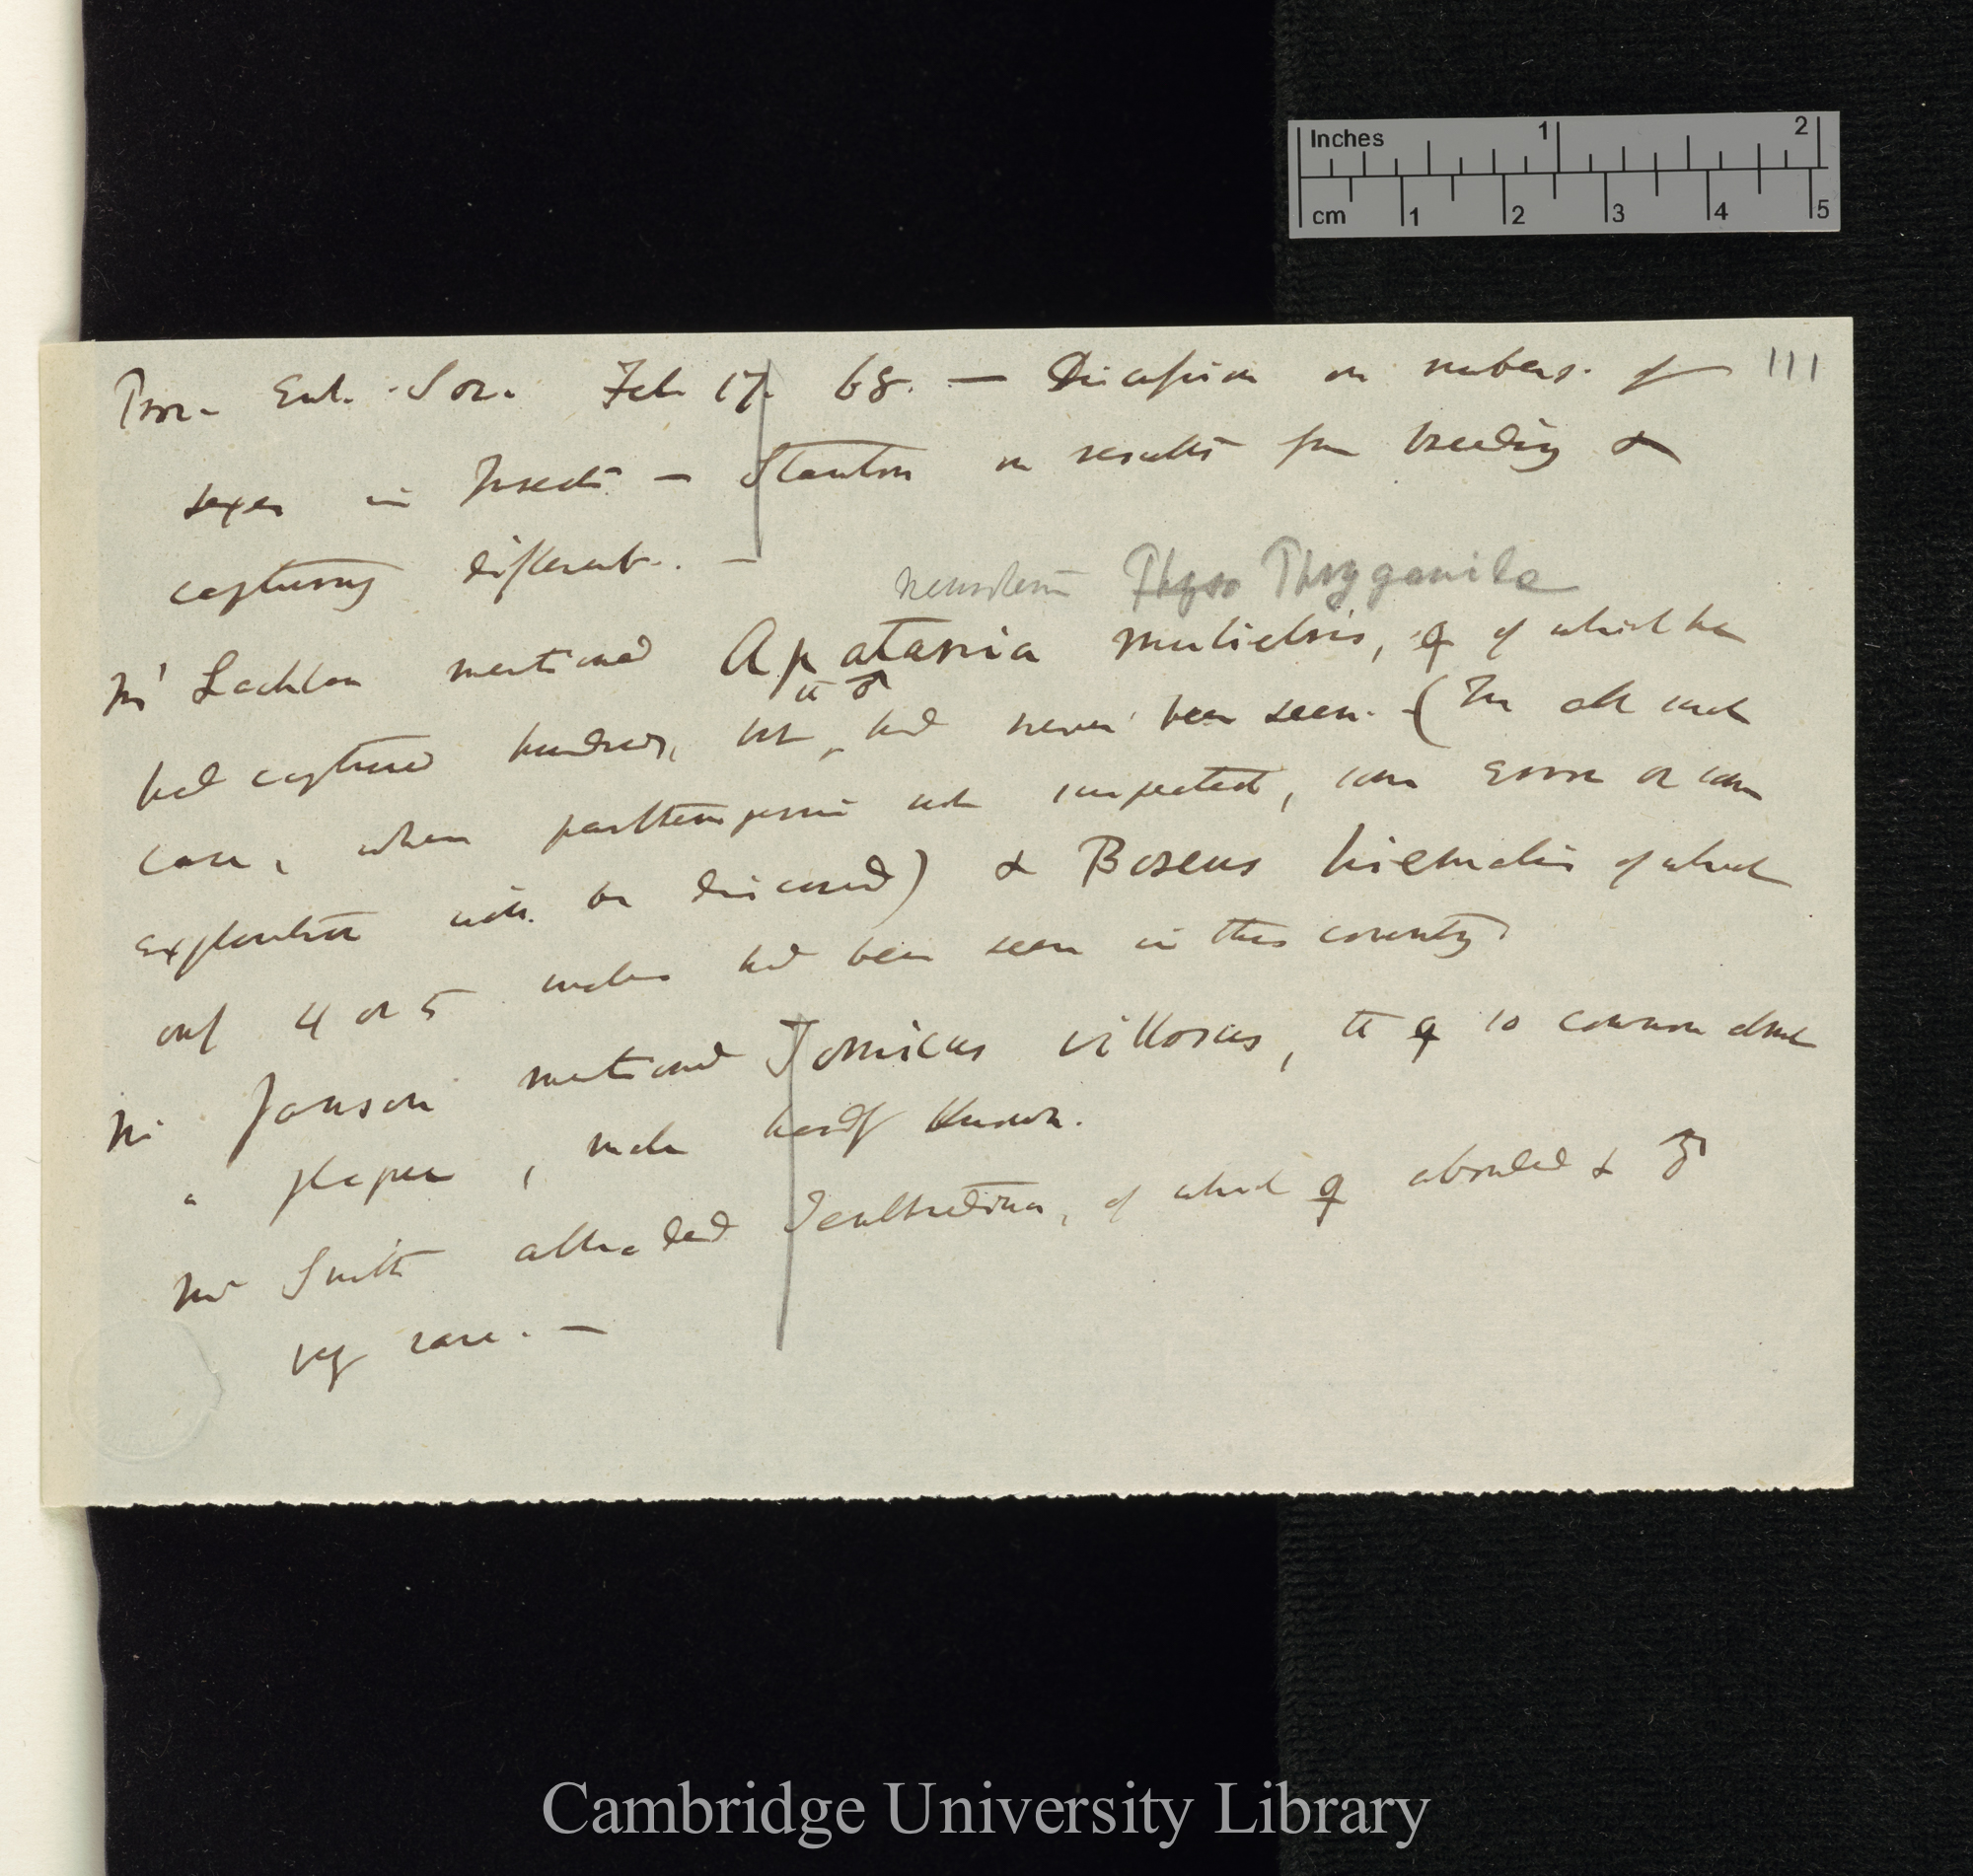 Inches 1 2
cm 1 2 3 4 5
111
Proc. Ent. Soc. Feb 17. 68. — Discussion on numbers of
sexes in Insects — Stainton on results from breeding &
capturing different. —
neuroptera Phryganidae
Mr Lachlan mentioned Apatania muliebris, ♀ of which he
the ♂
had captured hundreds, but had never been seen. — (In all such
cases, when parthenogenesis not suspected, some error or some
explanation will be discovered) & Boreus hiemalis of which
only 4 or 5 males had been seen in this country.
Mr Janson mentioned Tomicus villosus, the ♀ so common almost
a plague, male hardly known.
Mr Smith alluded Tenthredinae, of which ♀ abounded & ♂
very rare. —
Cambridge University Library